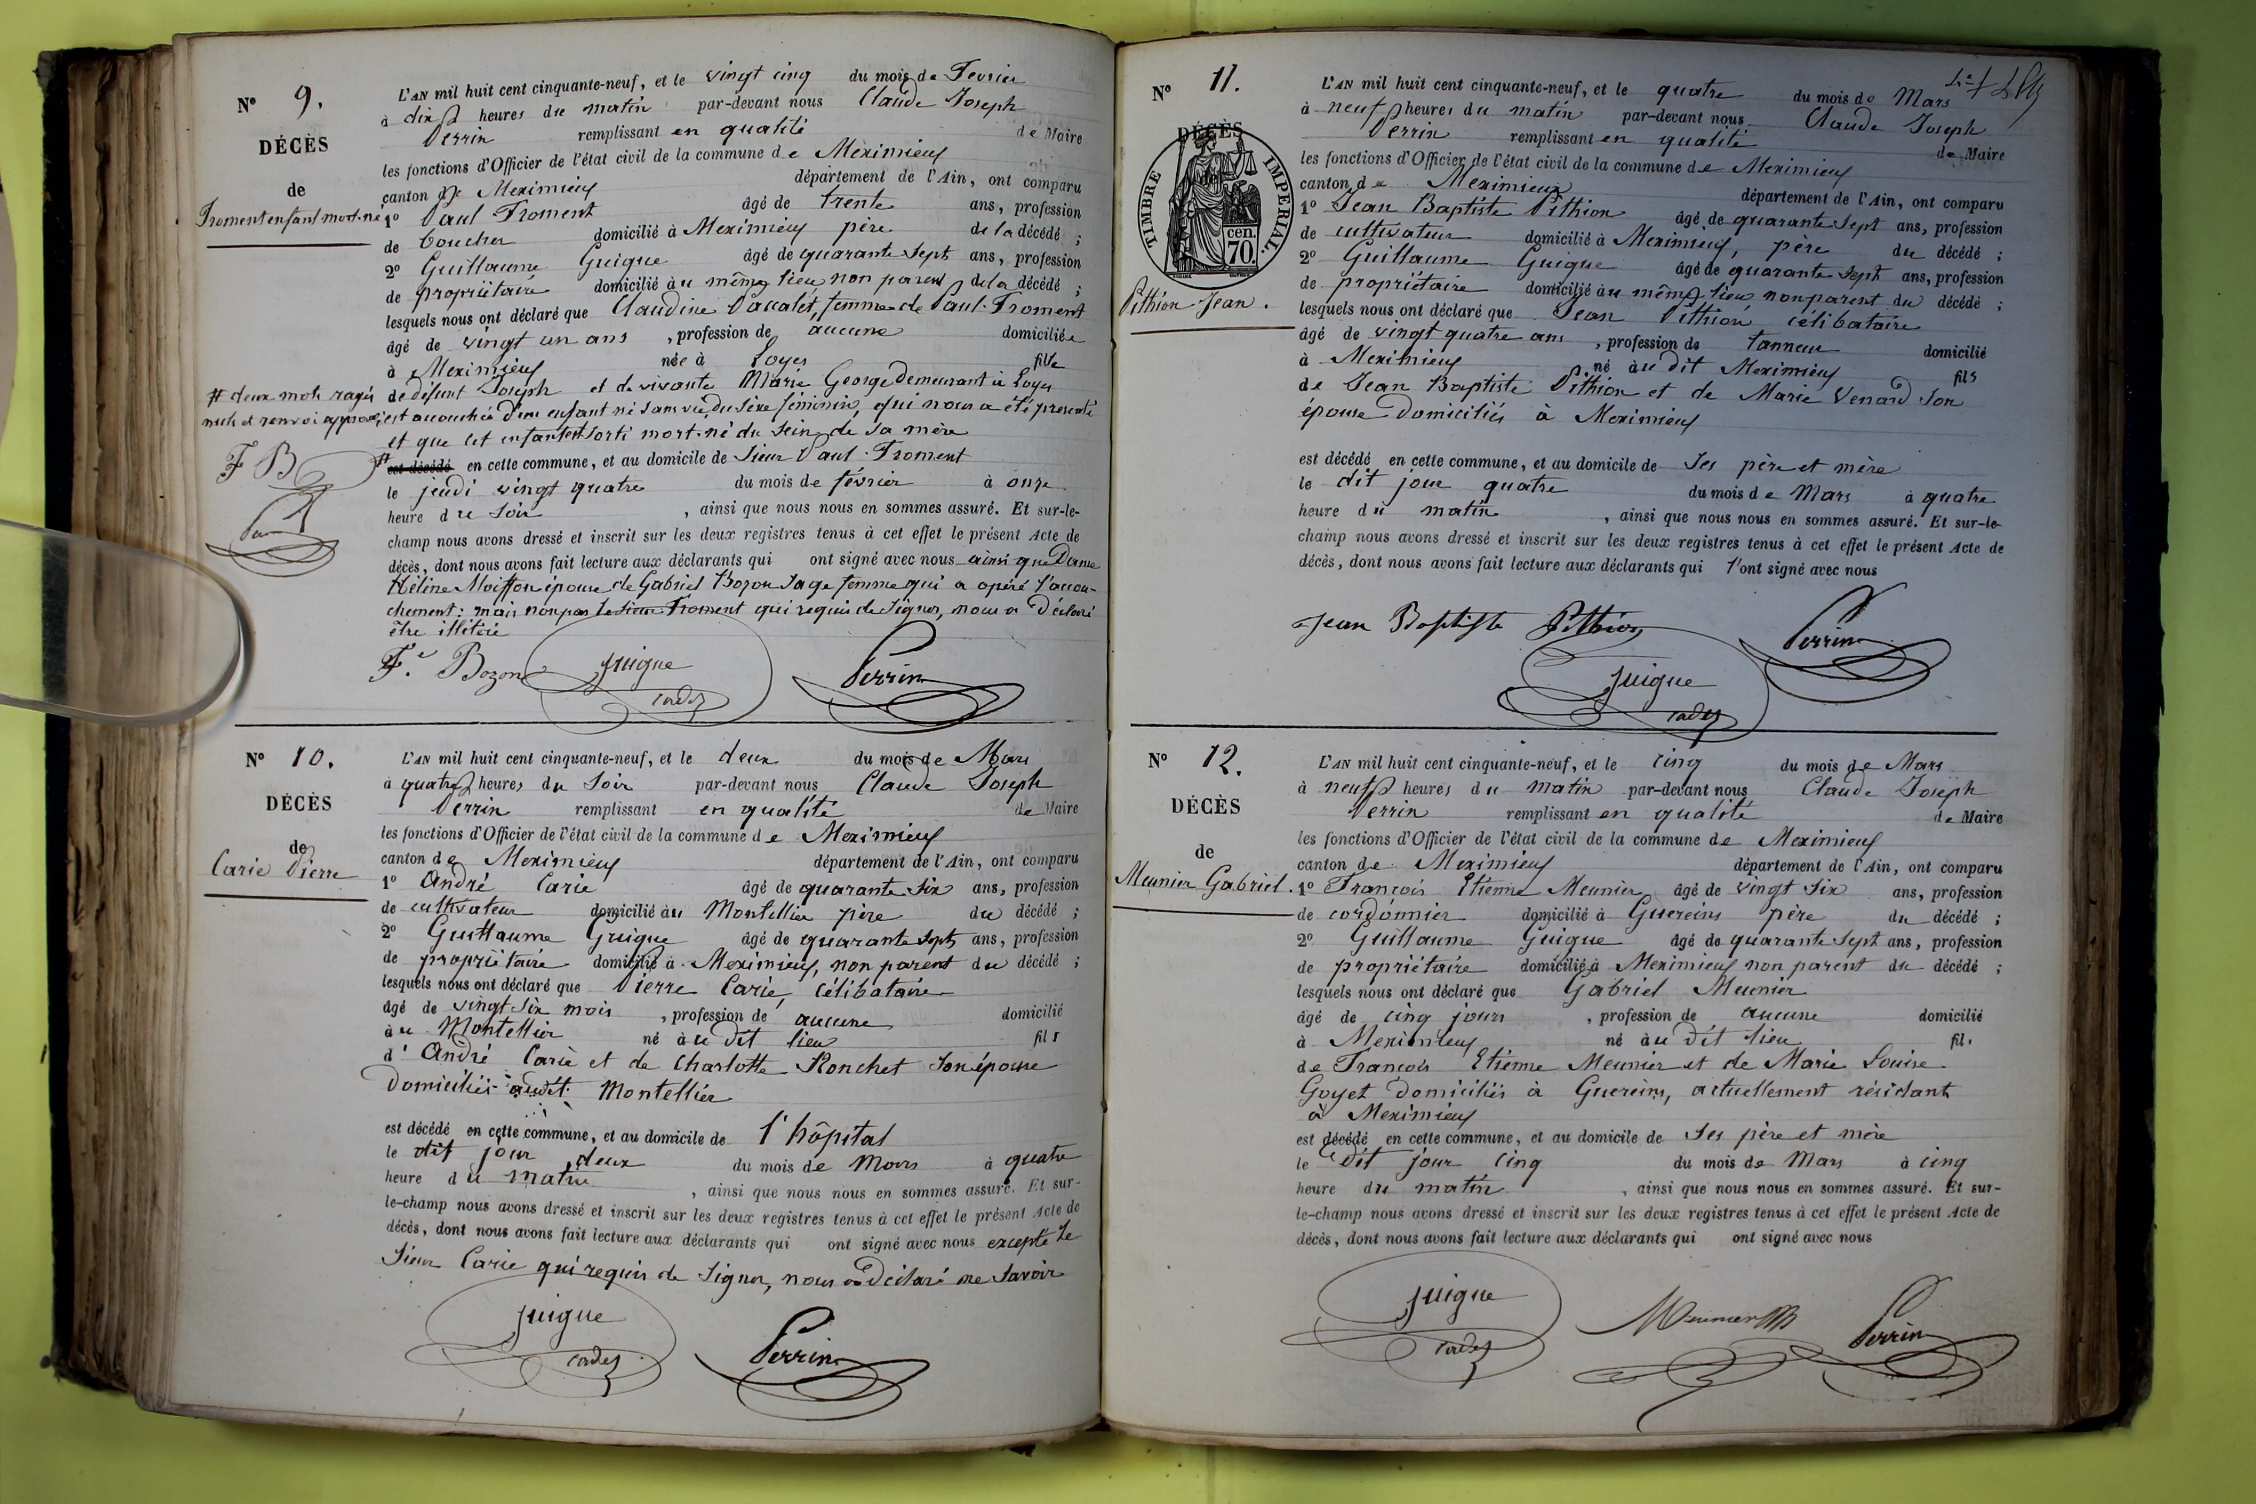 N° 9.
DÉCÈS
de
Froment enfant mort-né
L'AN mil huit cent cinquante-neuf, et le vingt cinq du mois de Fevrier
à dix heures du matin par-devant nous Claude Joseph
Perrin remplissant en qualité de Maire
les fonctions d'Officier de l'état civil de la commune de Meximieux
canton de Meximieux département de l'Ain, ont comparu
1° Paul Froment âgé de trente ans, profession
de boucher domicilié à Meximieux père de la décédé ;
2° Guillaume Guigue âgé de quarante sept ans, profession
de propriétaire domicilié au même lieu non parent de la décédé ;
lesquels nous ont déclaré que Claudine Paccalet, femme de Paul Froment
âgé de vingt un ans , profession de aucune domiciliée
à Meximieux née à Loyes fille
de défunt Joseph et de vivante Marie George demeurant à Loyes
est accouchée d'un enfant né sans vie, du sexe féminin, qui nous a été présenté
et que cet enfant est sorti mort-né du sein de sa mère
# deux mots rayés
nuls et renvoi approuvé
F B
# est décédé en cette commune, et au domicile de Sieur Paul Froment
le jeudi vingt quatre du mois de février à onze
heure du soir , ainsi que nous nous en sommes assuré. Et sur-le-
champ nous avons dressé et inscrit sur les deux registres tenus à cet effet le présent Acte de
décès, dont nous avons fait lecture aux déclarants qui ont signé avec nous ainsi que Dame
Héline Moiffon épouse de Gabriel Bozon sage femme qui a opéré l'accou-
chement ; mais non pas le sieur Froment qui requis de signer, nous a déclaré
être illitéré
Fe. Bozon Guigue Perrin
N° 10.
DÉCÈS
de
Carie Pierre
L'AN mil huit cent cinquante-neuf, et le deux du mois de Mars
à quatre heures du soir par-devant nous Claude Joseph
Perrin remplissant en qualité de Maire
les fonctions d'Officier de l'état civil de la commune de Meximieux
canton de Meximieux département de l'Ain, ont comparu
1° André Carie âgé de quarante six ans, profession
de cultivateur domicilié au Montellier père du décédé ;
2° Guillaume Guigue âgé de quarante sept ans, profession
de propriétaire domicilié à Meximieux, non parent du décédé ;
lesquels nous ont déclaré que Pierre Carie, célibataire
âgé de vingt-six mois , profession de aucune domicilié
au Montellier né au dit lieu fils
d' André Carie et de Charlotte Ronchet son épouse
domiciliés audit Montellier
est décédé en cette commune, et au domicile de l'hôpital
le dit jour deux du mois de Mars à quatre
heure du matin , ainsi que nous nous en sommes assuré. Et sur-
le-champ nous avons dressé et inscrit sur les deux registres tenus à cet effet le présent Acte de
décès, dont nous avons fait lecture aux déclarants qui ont signé avec nous excepté le
Sieur Carie qui requis de signer, nous a déclaré ne savoir
Guigue Perrin
N° 11.
DÉCÈS
de
TIMBRE IMPÉRIAL.
cen.
70.
Pithion Jean.
L'AN mil huit cent cinquante-neuf, et le quatre du mois de Mars
à neuf heures du matin par-devant nous Claude Joseph
Perrin remplissant en qualité de Maire
les fonctions d'Officier de l'état civil de la commune de Meximieux
canton de Meximieux département de l'Ain, ont comparu
1° Jean Baptiste Pithion âgé de quarante sept ans, profession
de cultivateur domicilié à Meximieux, père du décédé ;
2° Guillaume Guigue âgé de quarante sept ans, profession
de propriétaire domicilié au même lieu non parent du décédé ;
lesquels nous ont déclaré que Jean Pithion célibataire
âgé de vingt quatre ans , profession de tanneur domicilié
à Meximieux né au dit Meximieux fils
de Jean Baptiste Pithion et de Marie Venard son
épouse domiciliés à Meximieux
est décédé en cette commune, et au domicile de ses père et mère
le dit jour quatre du mois de Mars à quatre
heure du matin , ainsi que nous nous en sommes assuré. Et sur-le-
champ nous avons dressé et inscrit sur les deux registres tenus à cet effet le présent Acte de
décès, dont nous avons fait lecture aux déclarants qui l'ont signé avec nous
Jean Baptiste Pithion Perrin
Guigue
N° 12.
DÉCÈS
de
Meunier Gabriel.
L'AN mil huit cent cinquante-neuf, et le cinq du mois de Mars
à neuf heures du matin par-devant nous Claude Joseph
Perrin remplissant en qualité de Maire
les fonctions d'Officier de l'état civil de la commune de Meximieux
canton de Meximieux département de l'Ain, ont comparu
1° François Etienne Meunier âgé de vingt six ans, profession
de cordonnier domicilié à Guereins père du décédé ;
2° Guillaume Guigue âgé de quarante sept ans, profession
de propriétaire domicilié à Meximieux non parent du décédé ;
lesquels nous ont déclaré que Gabriel Meunier
âgé de cinq jours , profession de aucune domicilié
à Meximieux né au dit lieu fils
de François Etienne Meunier et de Marie Louise
Goyet domiciliés à Guereins, actuellement résidant
à Meximieux
est décédé en cette commune, et au domicile de ses père et mère
le dit jour cinq du mois de Mars à cinq
heure du matin , ainsi que nous nous en sommes assuré. Et sur-
le-champ nous avons dressé et inscrit sur les deux registres tenus à cet effet le présent Acte de
décès, dont nous avons fait lecture aux déclarants qui ont signé avec nous
Guigue Meunier Perrin